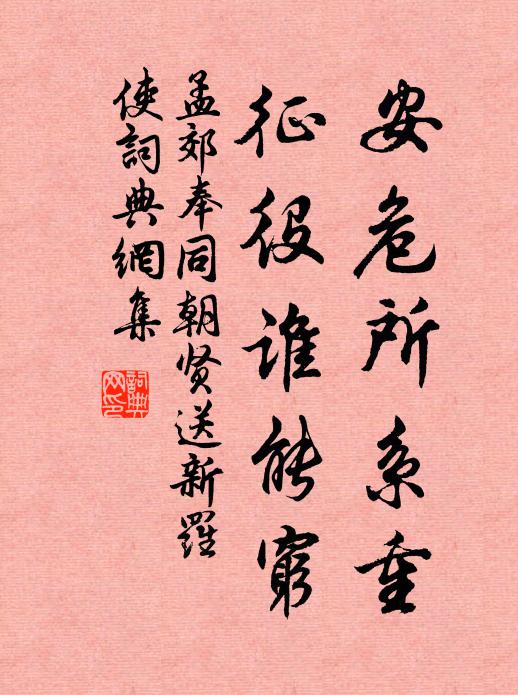 安危所系重
征役谁能窮
孟郊奉同朝贤送新羅
使詞典網集
詞典网印